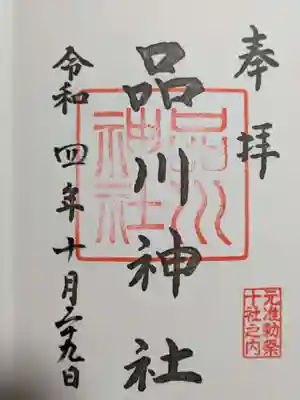 奉拝
元准勅祭
十社之内
品川神社
品川
神社
令和四年十月二十九日